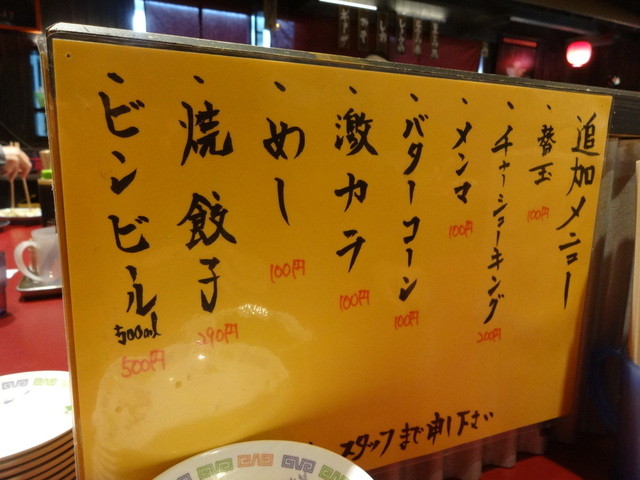 追加メニュー
・替玉 100円
・チャーシューキング 200円
・メンマ 100円
・バターコーン 100円
・激カラ 100円
・めし 100円
・焼餃子 290円
・ビンビール 500ml 500円
スタッフまで申し下さい